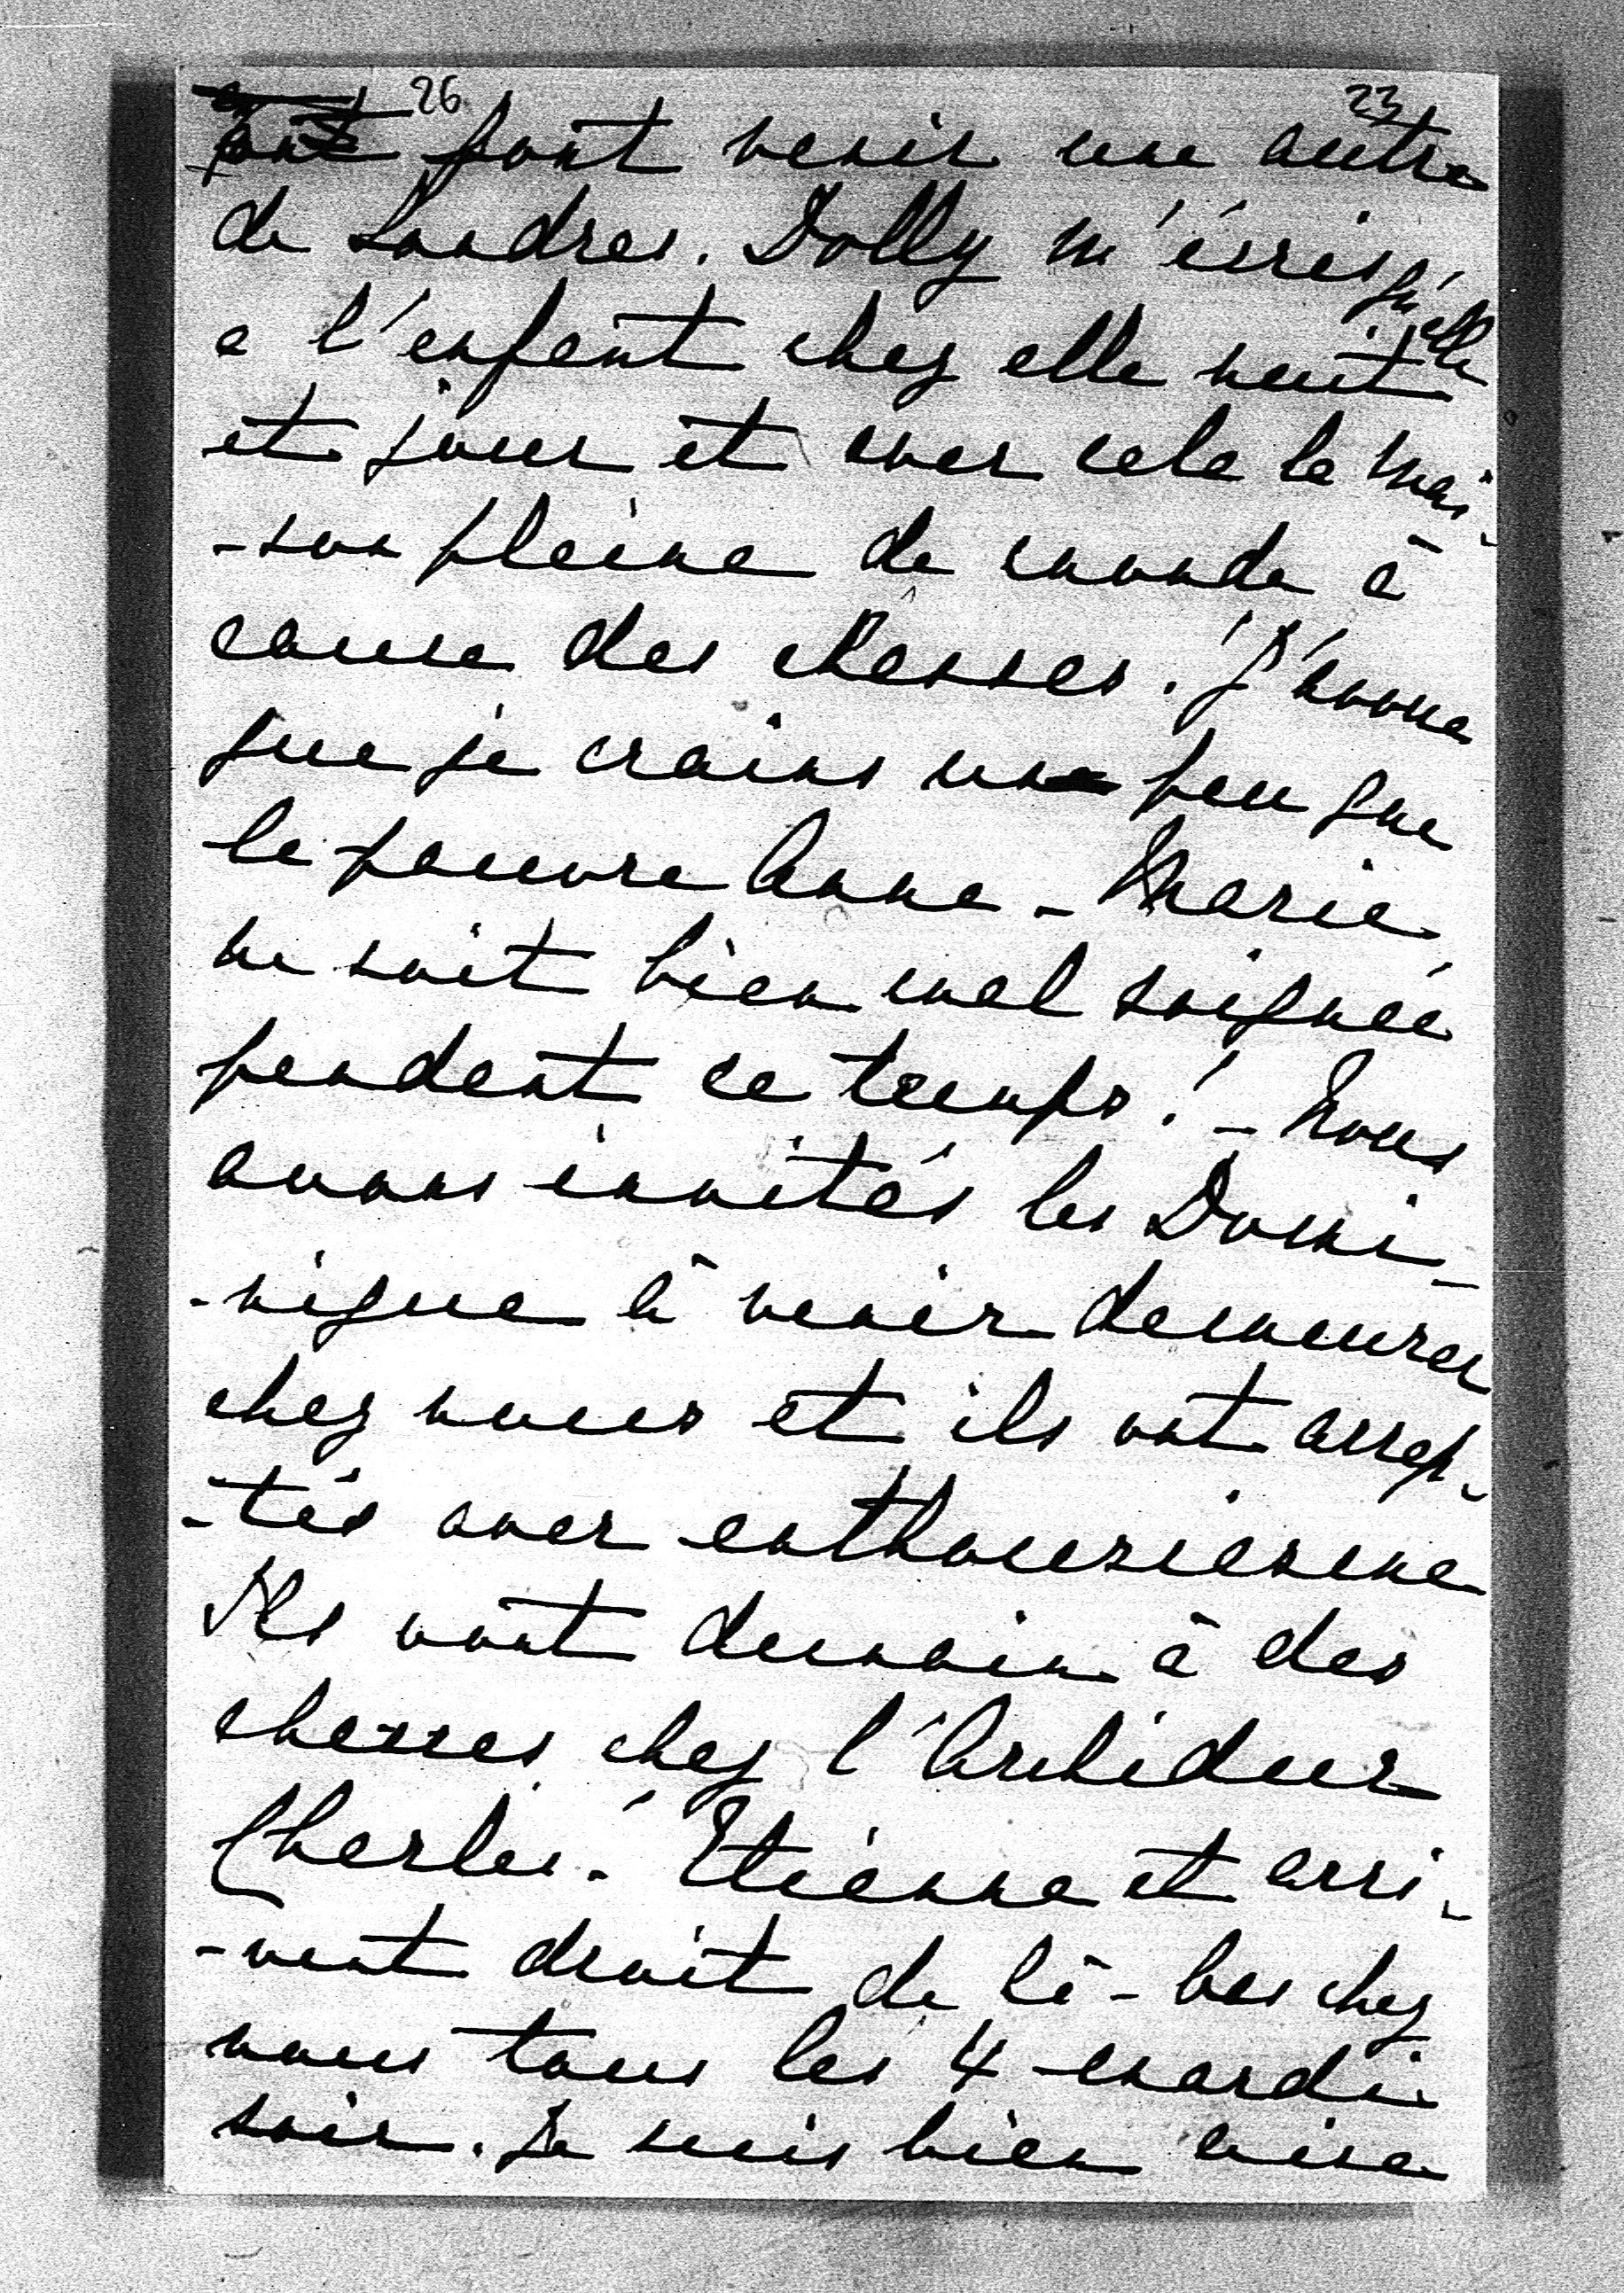 26 23
font venir une autre
de Londres. Dolly m'écris qu'elle
a l'enfant chez elle nuit
et jour et avec cela la mai-
-son pleine de monde à
cause des chasses. J'avoue
que je crains un peu que
la pauvre Anna-Marie
ne soit bien mal soignée
pendant ce temps! - Nous
avons invités les Domi-
-nique à venir demeurer
chez nous et ils ont accep-
-tés avec enthousiasme
Ils vont demain à des
chasses chez l'Archiduc
Charles-Etienne et arri-
-vent droit de là-bas chez
nous tous les 4 mardi
soir. Je suis bien aise